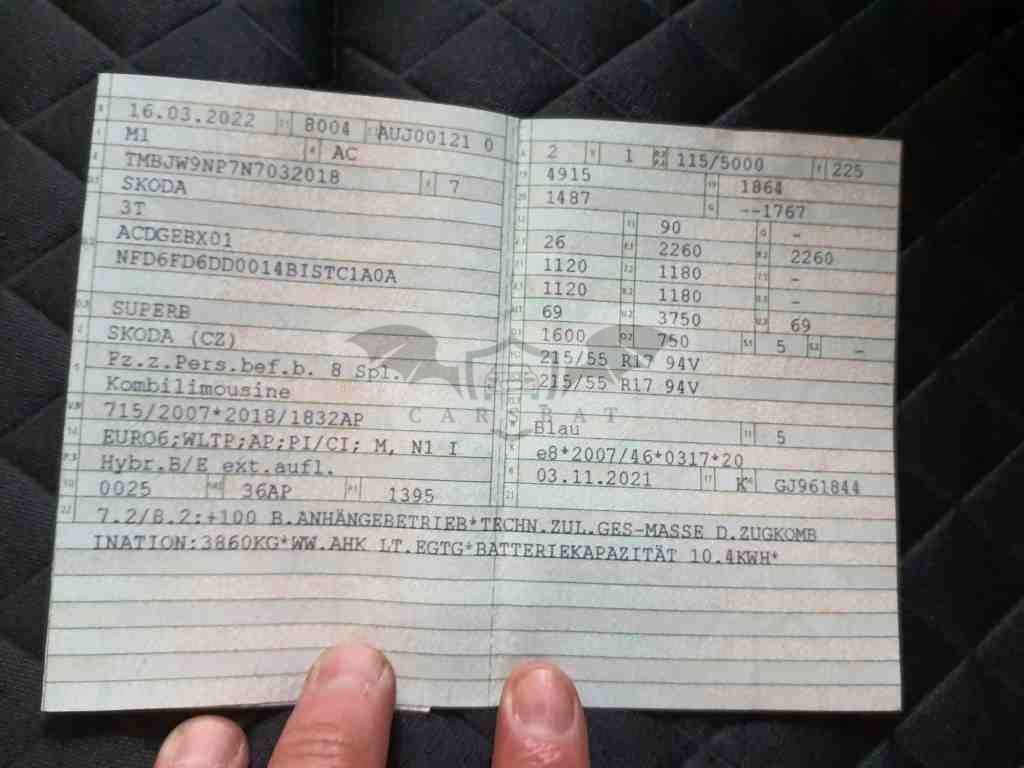 16.03.2022 8004 AUJ00121 0
M1 AC
TMBJW9NP7N7032018 7
SKODA
3T
ACDGEBX01
NFD6FD6DD0014BISTC1A0A
SUPERB
SKODA (CZ)
Fz.z.Pers.bef.b. 8 Spl.
Kombilimousine
715/2007*2018/1832AP
EURO6;WLTP;AP;PI/CI; M, N1 I
Hybr.B/E ext.aufl.
0025 36AP 1395
2 1 115/5000 225
4915 1864
1487 --1767
90 -
26 2260 2260
1120 1180 -
1120 1180 -
69 3750 69
1600 750 5 -
215/55 R17 94V
215/55 R17 94V
CARSBAT
Blau 5
e8*2007/46*0317*20
03.11.2021 K GJ961844
7.2/8.2:+100 B.ANHÄNGEBETRIEB*TECHN.ZUL.GES-MASSE D.ZUGKOMB
INATION:3860KG*WW.AHK LT.EGTG*BATTERIEKAPAZITÄT 10.4KWH*